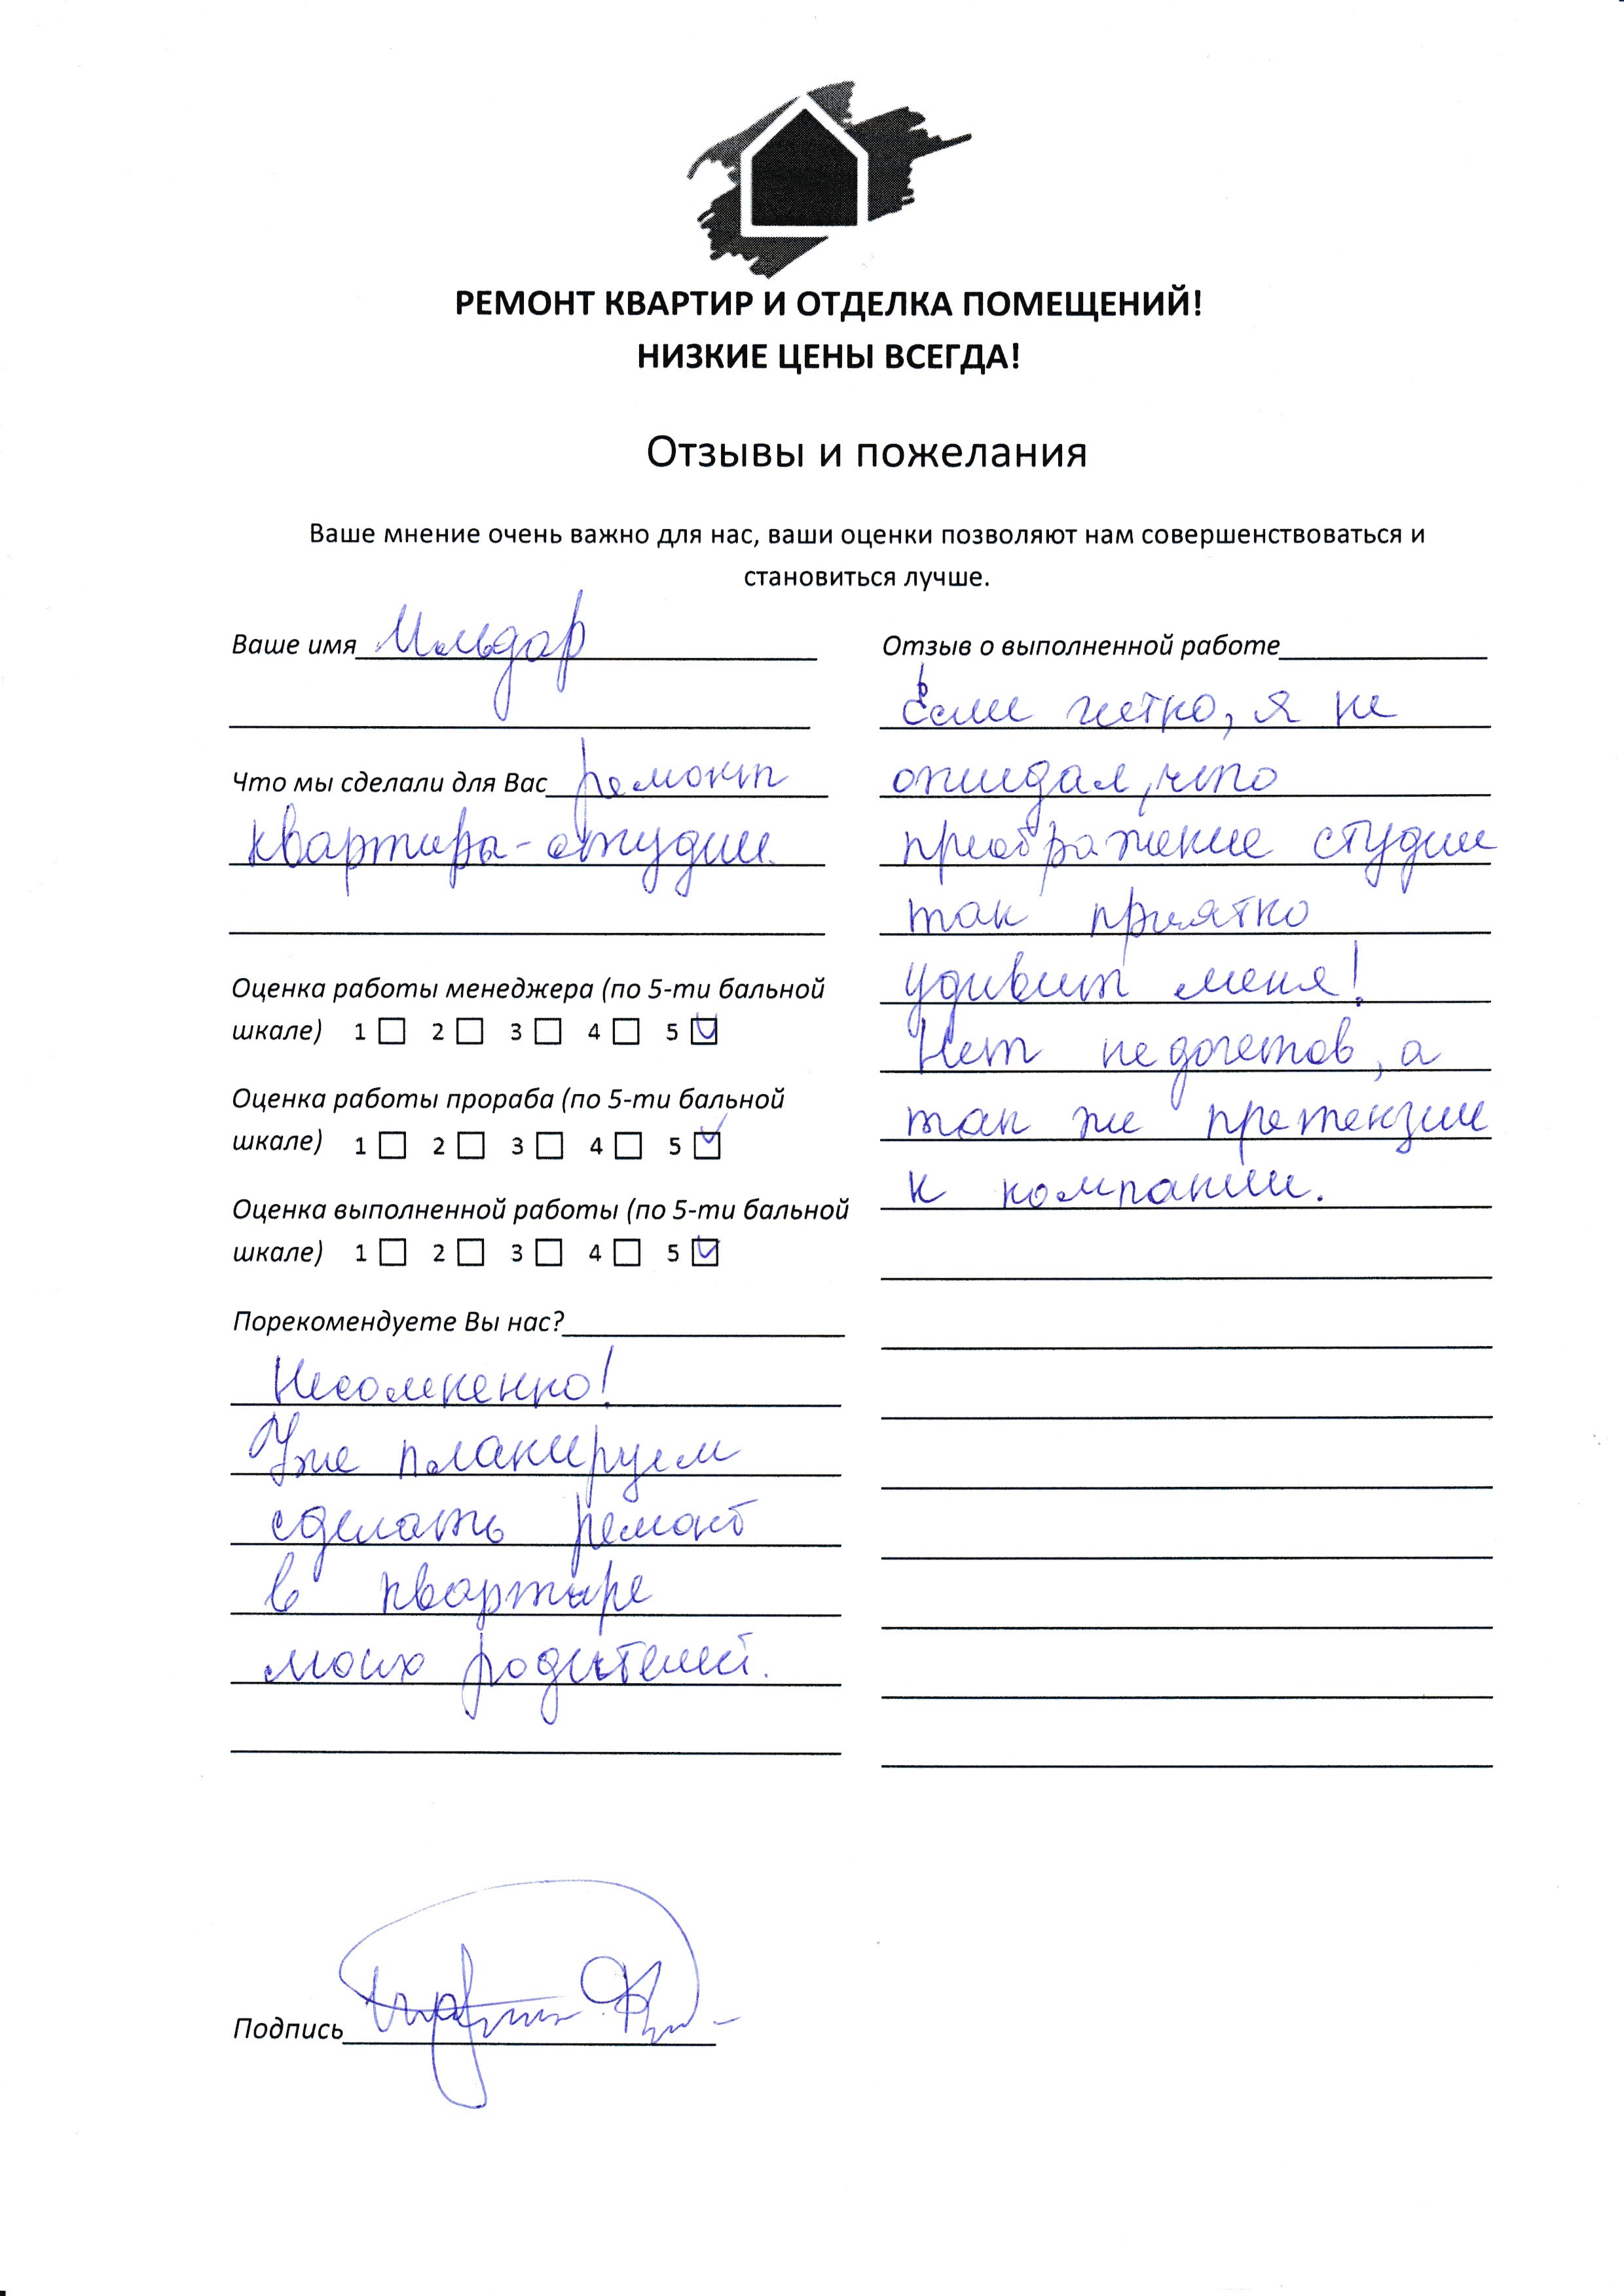 РЕМОНТ КВАРТИР И ОТДЕЛКА ПОМЕЩЕНИЙ!
НИЗКИЕ ЦЕНЫ ВСЕГДА!
Отзывы и пожелания
Ваше мнение очень важно для нас, ваши оценки позволяют нам совершенствоваться и
становиться лучше.
Ваше имя Ильдар
Что мы сделали для Вас ремонт
квартиры-студии.
Оценка работы менеджера (по 5-ти бальной
шкале) 1 2 3 4 5
Оценка работы прораба (по 5-ти бальной
шкале) 1 2 3 4 5
Оценка выполненной работы (по 5-ти бальной
шкале) 1 2 3 4 5
Порекомендуете Вы нас?
Несомненно!
Уже планируем
сделать ремонт
в квартире
моих родителей.
Отзыв о выполненной работе
Если четко, я не
ожидал, что
преображение студии
так приятко
удивит меня!
Нет недочетов, а
так же претензии
к компании.
Подпись